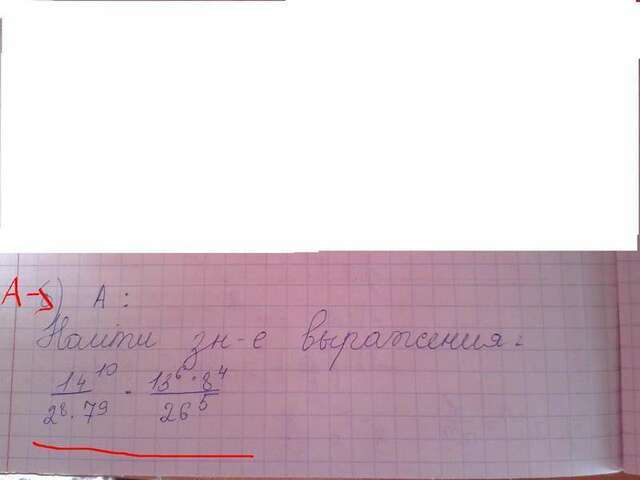 А-5) А:
Найти зн-е выражения:
14¹⁰ / 2⁸·7⁹ · 13⁶·8⁴ / 26⁵